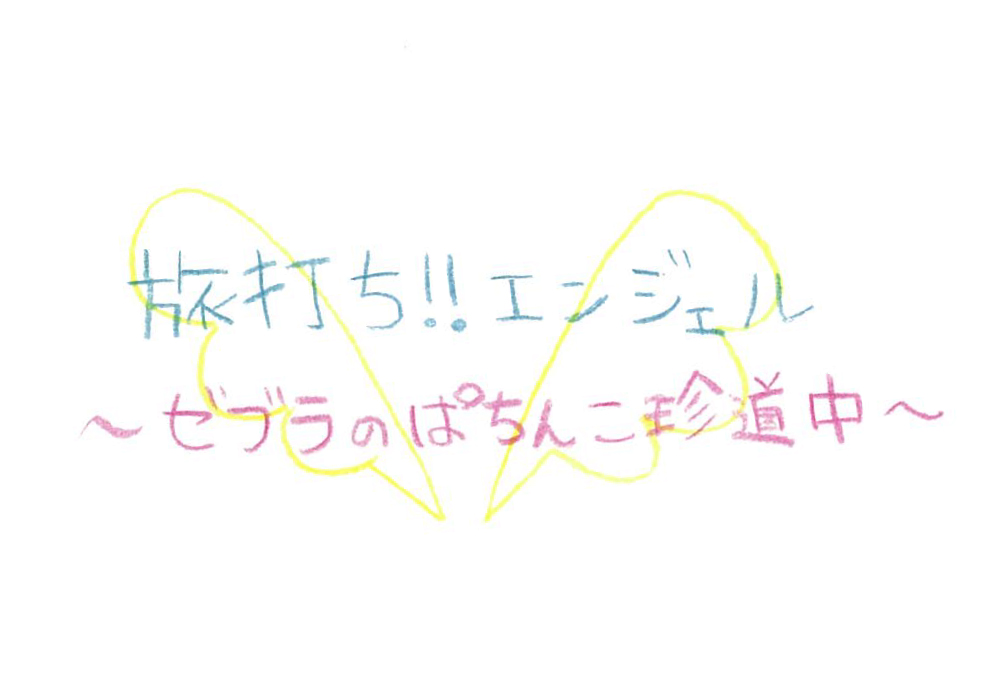 旅打ち!!エンジェル
～ゼブラのぱちんこ珍道中～